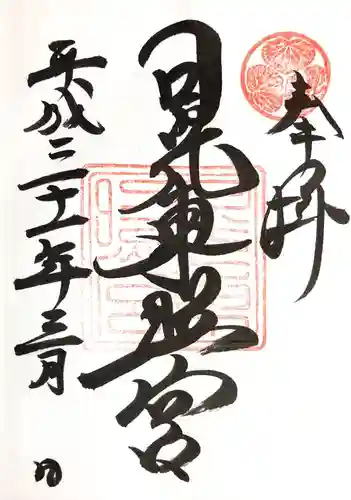 奉拝
日光東照宮
平成三十一年三月
日